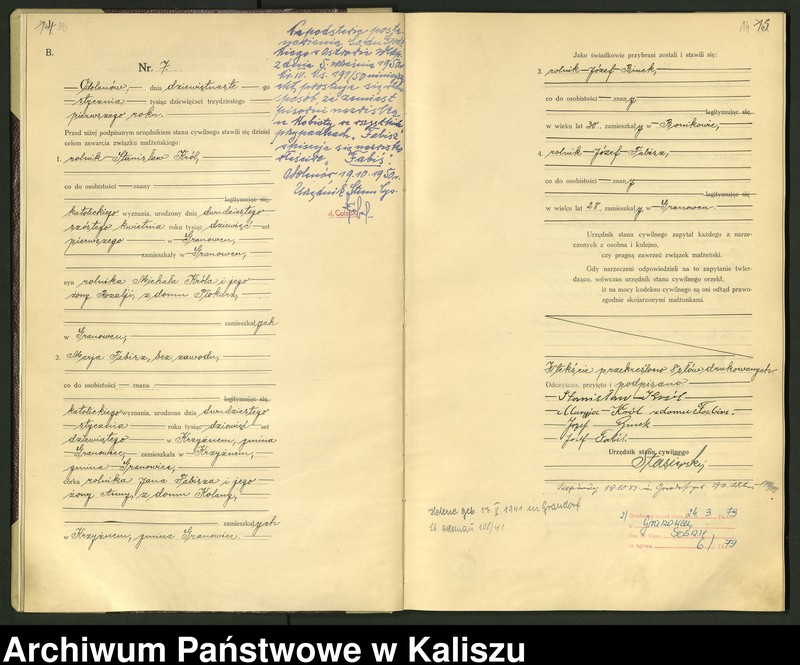 B.
Nr. 7.
dnia dziewiętnaste go
stycznia tysiąc dziewięćset trzydziestego
pierwszego roku.
Przed niżej podpisanym urzędnikiem stanu cywilnego stawili się dzisiaj
celem zawarcia związku małżeńskiego:
1. rolnik Stanisław Król,
co do osobistości znany
legitymując się
katolickiego wyznania, urodzony dnia dwudziestego
szóstego kwietnia roku tysiąc dziewięć set
pierwszego w Granowcu,
zamieszkały w Granowcu,
syn rolnika Michała Króla i jego
żony Rozalji, z domu
zamieszkałych
w Granowcu,
2. Marja Fabisz, bez zawodu,
co do osobistości znana
legitymując się
katolickiego wyznania, urodzona dnia dwudziestego
stycznia roku tysiąc dziewięć set
dziewiątego w Krzyżnem, gmina
Granowiec, zamieszkała w Krzyżnem,
gmina Granowiec,
córka rolnika Jana Fabisza i jego
żony Anny, z domu
zamieszkałych
w Krzyżnem, gmina Granowiec.
Na podstawie posta-
nowienia Sądu
z dnia 5. września 1950
191/50
sposób, że zamiast
przypadkach "Fabisz"
wpisuje się nazwisko
"Fabiś".
19.10.1950r.
Urzędnik Stanu Cyw.
15
Jako świadkowie przybrani zostali i stawili się:
3. rolnik Józef
co do osobistości znany
legitymując się
w wieku lat 30, zamieszkały w
4. rolnik Józef Fabisz,
co do osobistości znany
legitymując się
w wieku lat 28, zamieszkały w Granowcu.
Urzędnik stanu cywilnego zapytał każdego z narze-
czonych z osobna i kolejno,
czy pragną zawrzeć związek małżeński.
Gdy narzeczeni odpowiedzieli na to zapytanie twier-
dząco, wówczas urzędnik stanu cywilnego orzekł,
iż na mocy kodeksu cywilnego są oni odtąd prawo-
zgodnie skojarzonymi małżonkami.
W tekście przekreślono 8 słów drukowanych
Odczytano, przyjęto i podpisano
Stanisław Król
Marja Król z domu Fabisz.
Józef
Józef Fabiś
Urzędnik stanu cywilnego
Helene geb. 1941 in Grandorf
108/41
2)
24.3.1979
6/1979
Archiwum Państwowe w Kaliszu